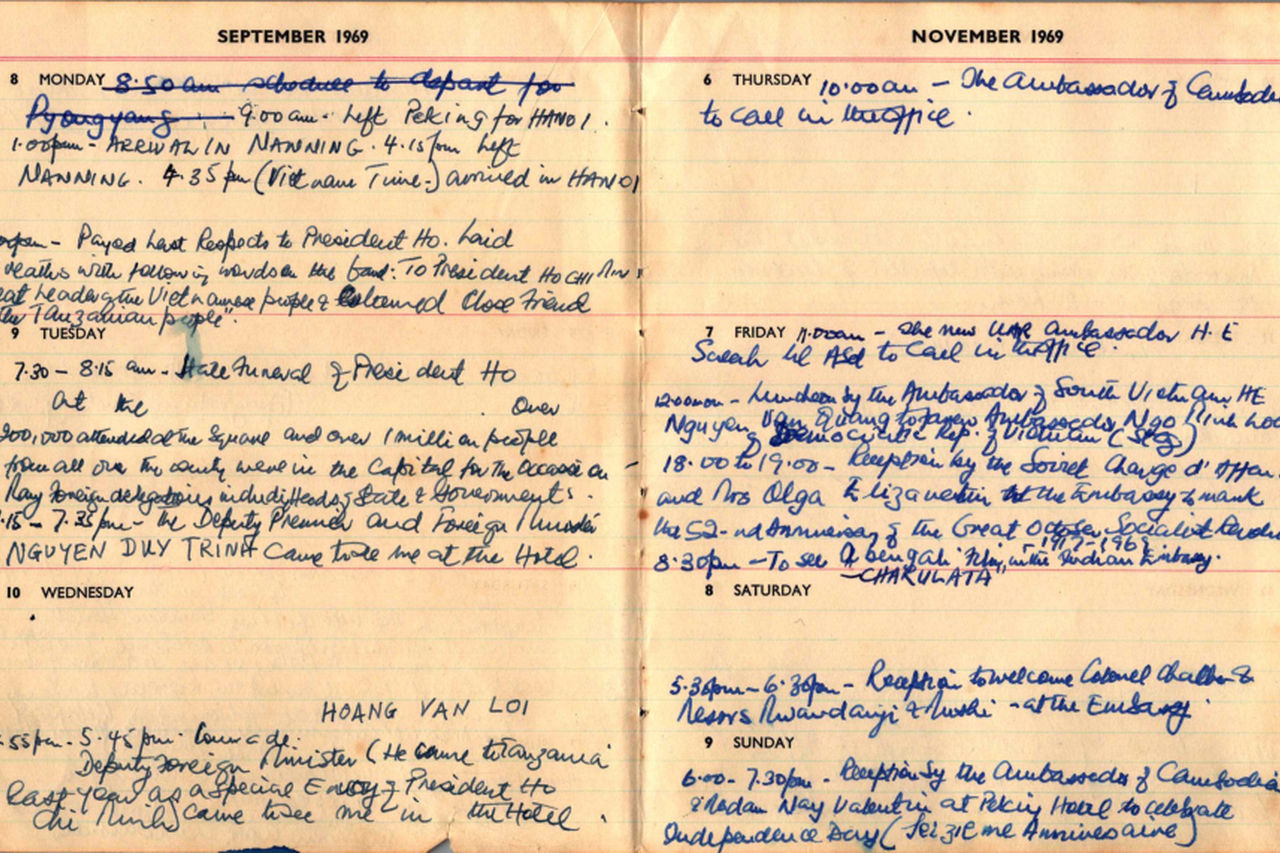 SEPTEMBER 1969
8 MONDAY 8.50am schedule to depart for
Pyongyang 9.00am. Left Peking for HANOI.
1.00pm - ARRIVAL IN NANNING. 4.15pm Left
NANNING. 4.35pm (Vietnam Time.) arrived in HANOI
pm - Payed Last Respects to President Ho. Laid
reaths with following words on the band: To President HO CHI Minh
eat Leader of the Vietnamese people & Esteemed Close Friend
the Tanzanian people".
9 TUESDAY
7.30 - 8.15 am - State Funeral of President Ho
at the . Over
200,000 attended at the Square and over 1 million people
from all over the county were in the Capital for the occasion -
Many Foreign delegations including Heads of State & Governments.
.15 - 7.35pm - the Deputy Premier and Foreign Minister
NGUYEN DUY TRINH came to see me at the Hotel.
10 WEDNESDAY
HOANG VAN LOI
.55pm - 5.45pm. Comrade.
Deputy Foreign Minister (He came to Tanzania
Last year as a Special Envoy of President Ho
Chi Minh) came to see me in the Hotel.
NOVEMBER 1969
6 THURSDAY 10.00am - The Ambassador of Cambodia
to call in the Office.
7 FRIDAY 11.00am - The new UAR Ambassador H.E
Salah el ASd to call in the Office.
12.00noon - Luncheon by the Ambassador of South Vietnam HE
Nguyen Van Quang to new Ambassador Ngo Minh Loan
of Democratic Rep. of Vietnam (SEG)
18.00 to 19.00 - Reception by the Soviet Charge d'Affair
and Mrs Olga Elizavetin at the Embassy to mark
the 52-nd Anniversary of the Great October Socialist Revolu
1917-1969
8.30pm - To see A bengali Film, in the Indian Embassy.
- CHARULATA
8 SATURDAY
5.30pm - 6.30pm - Reception to welcome Colonel &
Messrs Mwandanji & Moshi - at the Embassy.
9 SUNDAY
6.00 - 7.30pm - Reception by the Ambassador of Cambodia
& Madam Nay Valentin at Peking Hotel to celebrate
Independence Day (Seizieme Anniversaire)